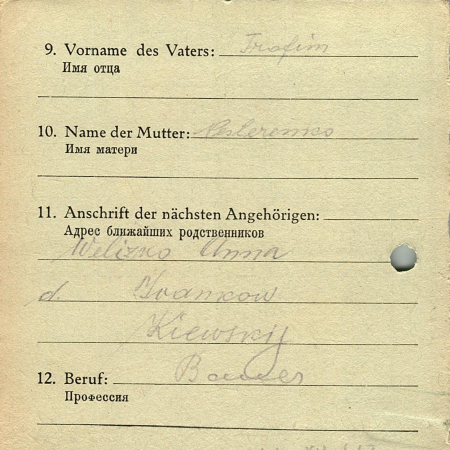 9. Vorname des Vaters: Trofim
Имя отца
10. Name der Mutter: Nesterenko
Имя матери
11. Anschrift der nächsten Angehörigen:
Адрес ближайших родственников
Welizko Anna
d. Ivankow
Kiewskij
12. Beruf: Bauer
Профессия